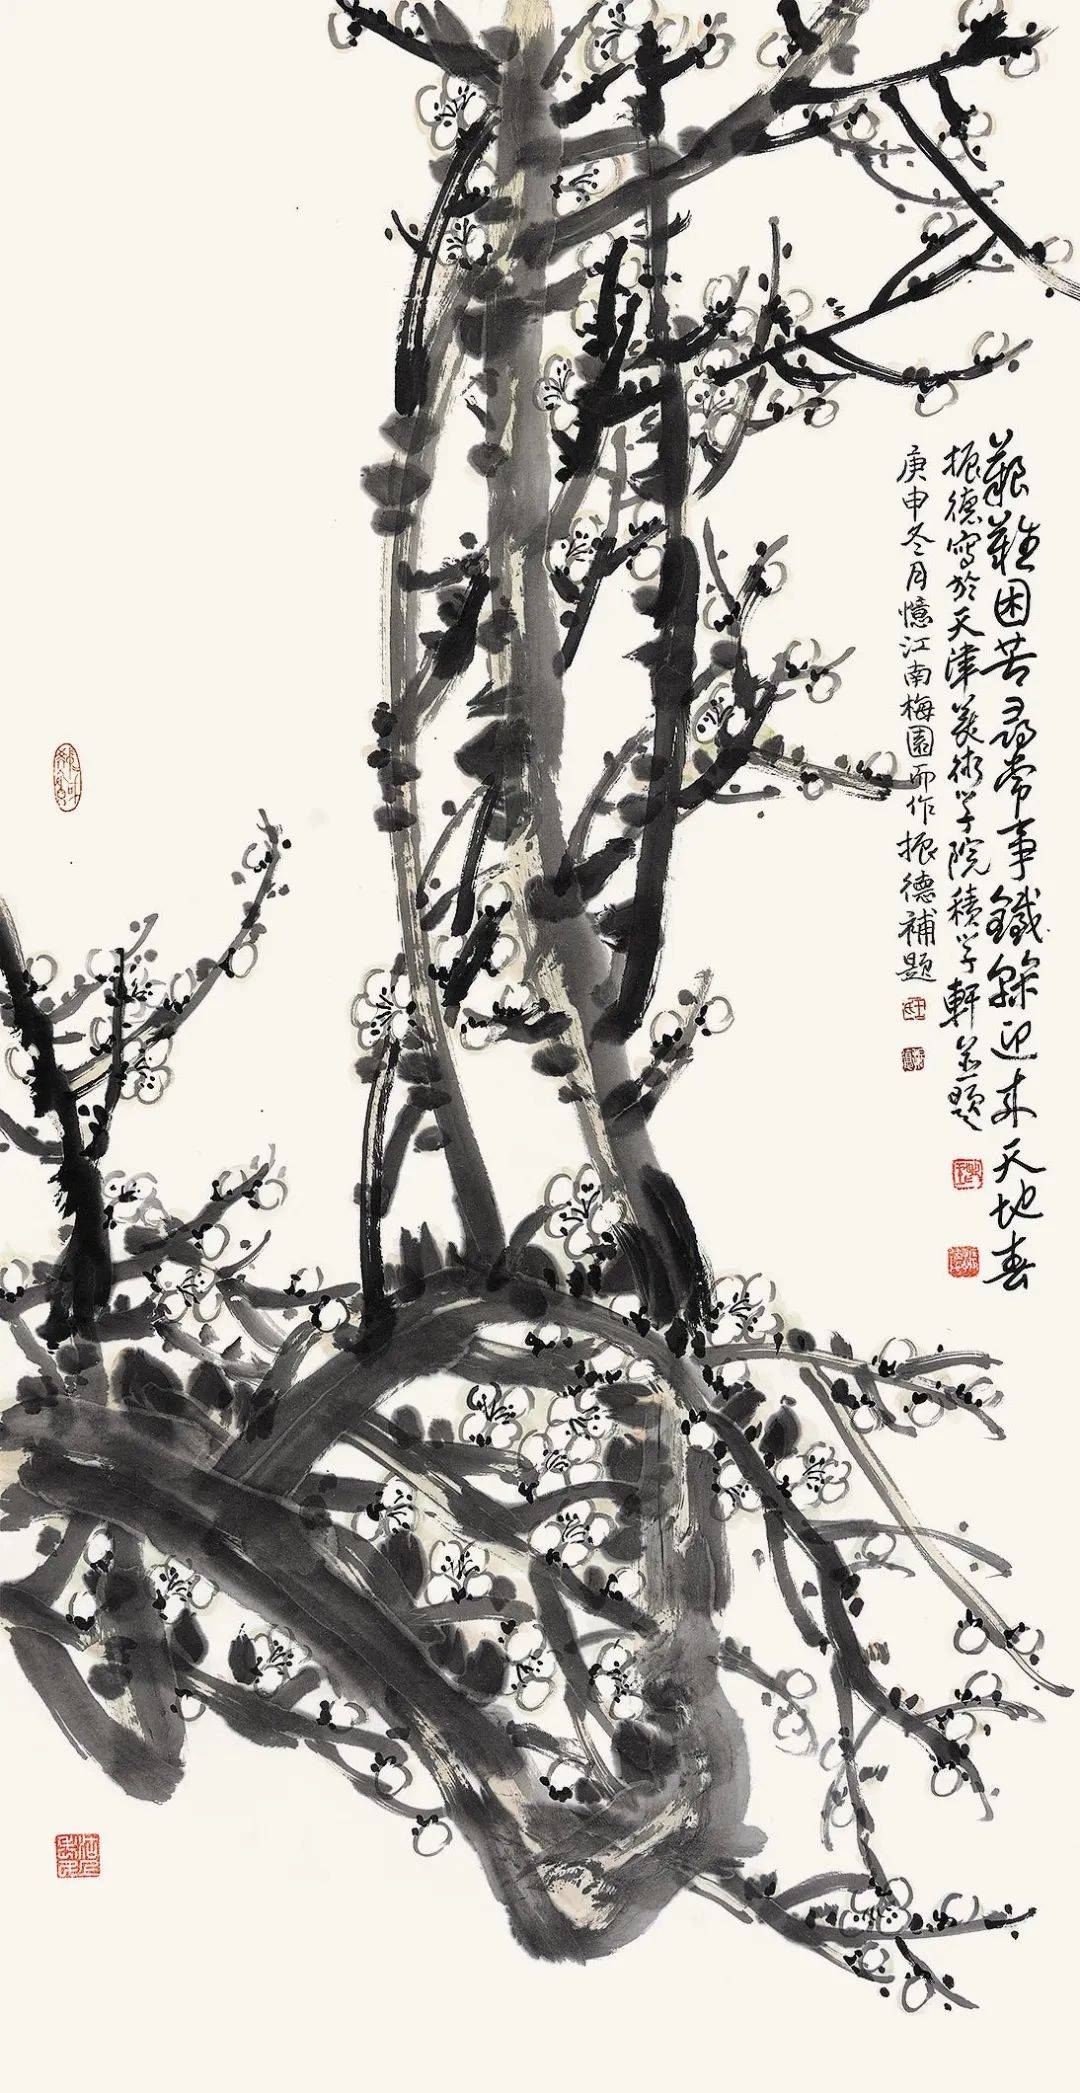 艱難困苦尋常事鐵幹迎來天地春
振德寫於天津美術學院積學軒並題
庚申冬月憶江南梅園而作振德補題